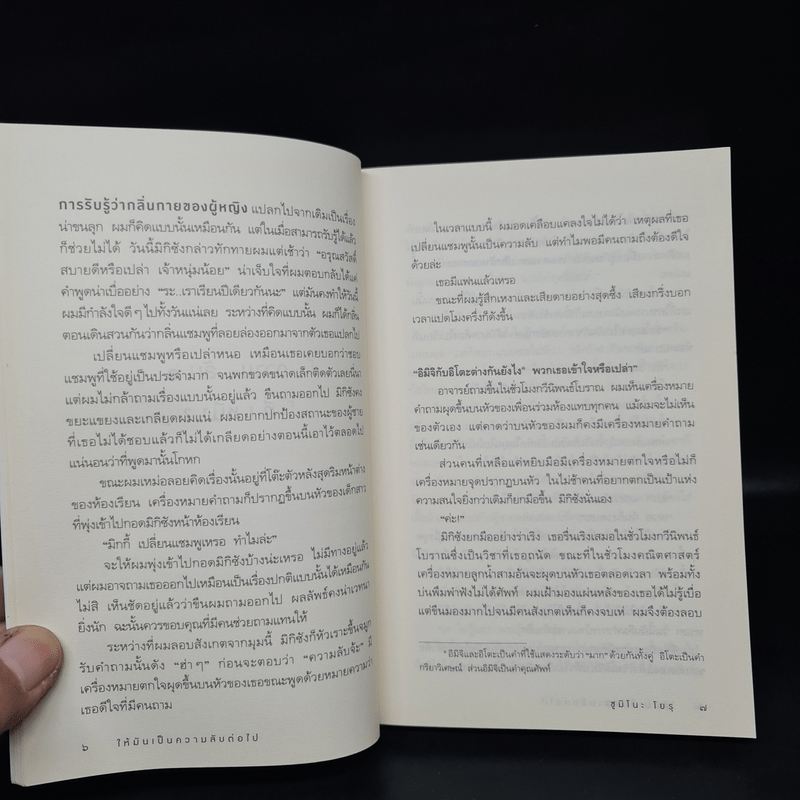 การรับรู้ว่ากลิ่นกายของผู้หญิง แปลกไปจากเดิมเป็นเรื่อง
น่าขนลุก ผมก็คิดแบบนั้นเหมือนกัน แต่ในเมื่อสามารถรับรู้ได้แล้ว
ก็ช่วยไม่ได้ วันนี้มิกิซังกล่าวทักทายผมแต่เช้าว่า "อรุณสวัสดิ์
สบายดีหรือเปล่า เจ้าหนุ่มน้อย" น่าเจ็บใจที่ผมตอบกลับได้แค่
คำพูดน่าเบื่ออย่าง "ระ..เราเรียนปีเดียวกันนะ" แต่มันคงทำให้วันนี้
ผมมีกำลังใจดีๆ ไปทั้งวันแน่เลย ระหว่างที่คิดแบบนั้น ผมก็ได้กลิ่น
ตอนเดินสวนกันว่ากลิ่นแชมพูที่ลอยล่องออกมาจากตัวเธอแปลกไป
เปลี่ยนแชมพูหรือเปล่าหนอ เหมือนเธอเคยบอกว่าชอบ
แชมพูที่ใช้อยู่เป็นประจำมาก จนพกขวดขนาดเล็กติดตัวเลยนี่นา
แต่ผมไม่กล้าถามเรื่องแบบนั้นอยู่แล้ว ขืนถามออกไป มิกิซังคง
ขยะแขยงและเกลียดผมแน่ ผมอยากปกป้องสถานะของผู้ชาย
ที่เธอไม่ได้ชอบแล้วก็ไม่ได้เกลียดอย่างตอนนี้เอาไว้ตลอดไป
แน่นอนว่าที่พูดมานั้นโกหก
ขณะผมเหม่อลอยคิดเรื่องนั้นอยู่ที่โต๊ะตัวหลังสุดริมหน้าต่าง
ของห้องเรียน เครื่องหมายคำถามก็ปรากฏขึ้นบนหัวของเด็กสาว
ที่พุ่งเข้าไปกอดมิกิซังหน้าห้องเรียน
"มิกกี้ เปลี่ยนแชมพูเหรอ ทำไมล่ะ"
จะให้ผมพุ่งเข้าไปกอดมิกิซังบ้างน่ะเหรอ ไม่มีทางอยู่แล้ว
แต่ผมอาจถามเธอออกไปเหมือนเป็นเรื่องปกติแบบนั้นได้เหมือนกัน
ไม่สิ เห็นชัดอยู่แล้วว่าขืนผมถามออกไป ผลลัพธ์คงน่าเวทนา
ยิ่งนัก ฉะนั้นควรขอบคุณที่มีคนช่วยถามแทนให้
ระหว่างที่ผมลอบสังเกตจากมุมนี้ มิกิซังก็หัวเราะขึ้นจมูก
รับคำถามนั้นดัง "ฮ่าๆ" ก่อนจะตอบว่า "ความลับจ้ะ" มี
เครื่องหมายตกใจผุดขึ้นบนหัวของเธอขณะพูดด้วยหมายความว่า
เธอดีใจที่มีคนถาม
๖ ให้มันเป็นความลับต่อไป
ในเวลาแบบนี้ ผมอดเคลือบแคลงใจไม่ได้ว่า เหตุผลที่เธอ
เปลี่ยนแชมพูนั้นเป็นความลับ แต่ทำไมพอมีคนถามถึงต้องดีใจ
ด้วยล่ะ
เธอมีแฟนแล้วเหรอ
ขณะที่ผมรู้สึกเหงาและเสียดายอย่างสุดซึ้ง เสียงกริ่งบอก
เวลาแปดโมงครึ่งก็ดังขึ้น
"อิมิจิกับอิโตะต่างกันยังไง* พวกเธอเข้าใจหรือเปล่า"
อาจารย์ถามขึ้นในชั่วโมงกวีนิพนธ์โบราณ ผมเห็นเครื่องหมาย
คำถามผุดขึ้นบนหัวของเพื่อนร่วมห้องแทบทุกคน แม้ผมจะไม่เห็น
ของตัวเอง แต่คาดว่าบนหัวของผมก็คงมีเครื่องหมายคำถาม
เช่นเดียวกัน
ส่วนคนที่เหลือแค่หยิบมือมีเครื่องหมายตกใจหรือไม่ก็
เครื่องหมายจุดปรากฏบนหัว ในไม่ช้าคนที่อยากตกเป็นเป้าแห่ง
ความสนใจยิ่งกว่าเดิมก็ยกมือขึ้น มิกิซังนั่นเอง
"ค่ะ!"
มิกิซังยกมืออย่างร่าเริง เธอรื่นเริงเสมอในชั่วโมงกวีนิพนธ์
โบราณซึ่งเป็นวิชาที่เธอถนัด ขณะที่ในชั่วโมงคณิตศาสตร์
เครื่องหมายลูกน้ำสามอันจะผุดบนหัวเธอตลอดเวลา พร้อมทั้ง
บ่นพึมพำฟังไม่ได้ศัพท์ ผมเฝ้ามองแผ่นหลังของเธอได้ไม่รู้เบื่อ
แต่ขืนมองมากไปจนมีคนสังเกตเห็นก็คงจบเห่ ผมจึงต้องลอบ
* อิมิจิและอิโตะเป็นคำที่ใช้แสดงระดับว่า "มาก" ด้วยกันทั้งคู่ อิโตะเป็นคำ
กริยาวิเศษณ์ ส่วนอิมิจิเป็นคำคุณศัพท์
ซูมิโนะ โยรุ ๗